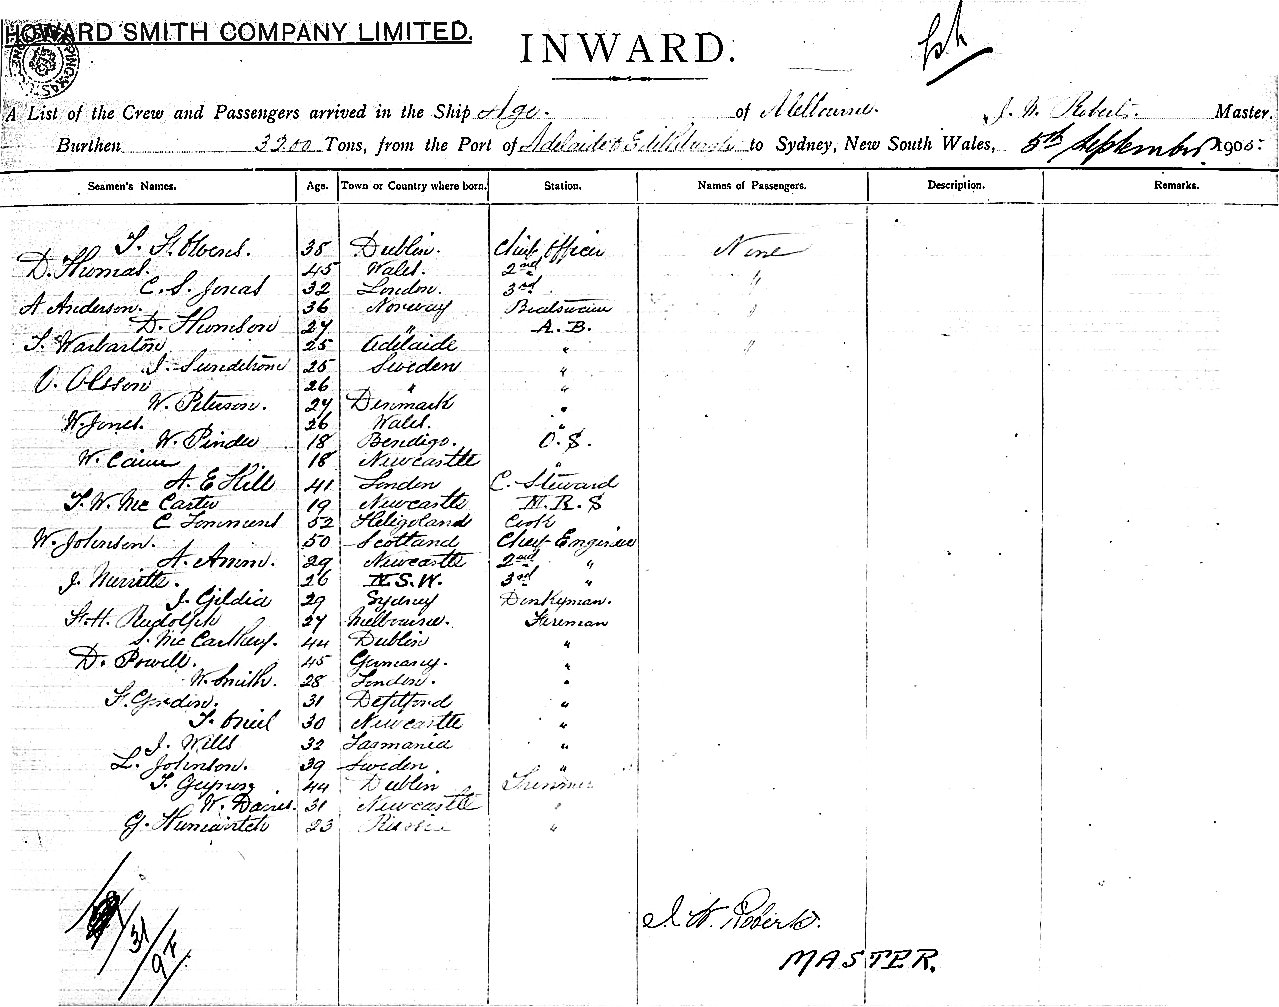 HOWARD SMITH COMPANY LIMITED.
INWARD.
A List of the Crew and Passengers arrived in the Ship Age. of Melbourne. J. W. Roberts. Master.
Burthen 3200 Tons, from the Port of Adelaide & to Sydney, New South Wales, 5th September 1905.
Seamen's Names. Age. Town or Country where born. Station. Names of Passengers. Description. Remarks.
38 Dublin. Chief Officer None
D. Thomas. 45 Wales. 2nd "
C. S. Jonas 32 London. 3rd.
A Anderson. 36 Norway Boatswain "
D. Thomson 27 " A.B.
T. Warbarton 25 Adelaide " "
J. Sundstrom 25 Sweden "
O. Olsson 26 " "
W. Peterson. 27 Denmark "
W. Jones. 26 Wales. "
W. Pinder 18 Bendigo. O.S.
W. Caine 18 Newcastle "
A. E Hill 41 London C. Steward
T. W. Mc Carter 19 Newcastle M.R.S
C 52 Heligoland Cook
W. Johnson. 50 Scotland Chief Engineer
A. 29 Newcastle 2nd "
J. 26 N.S.W. 3rd "
J. 29 Sydney Donkyman.
H. Rudolph 27 Melbourne. Fireman
S. Mc Carthey. 44 Dublin "
D. Powell. 45 Germany. "
W. Smith. 28 London. "
Gordon. 31 Deptford "
T. 30 Newcastle "
J. Wills 32 Tasmania "
L. Johnson. 39 Sweden. "
T. 44 Dublin Trimmer
W. Davies. 31 Newcastle "
G. 23 Russia "
31
97
J. W. Roberts.
MASTER.